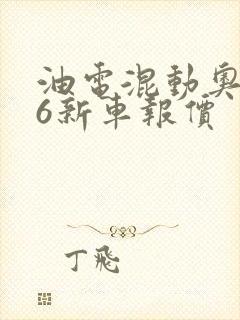 油電混動奧
6新車報價
丁飛